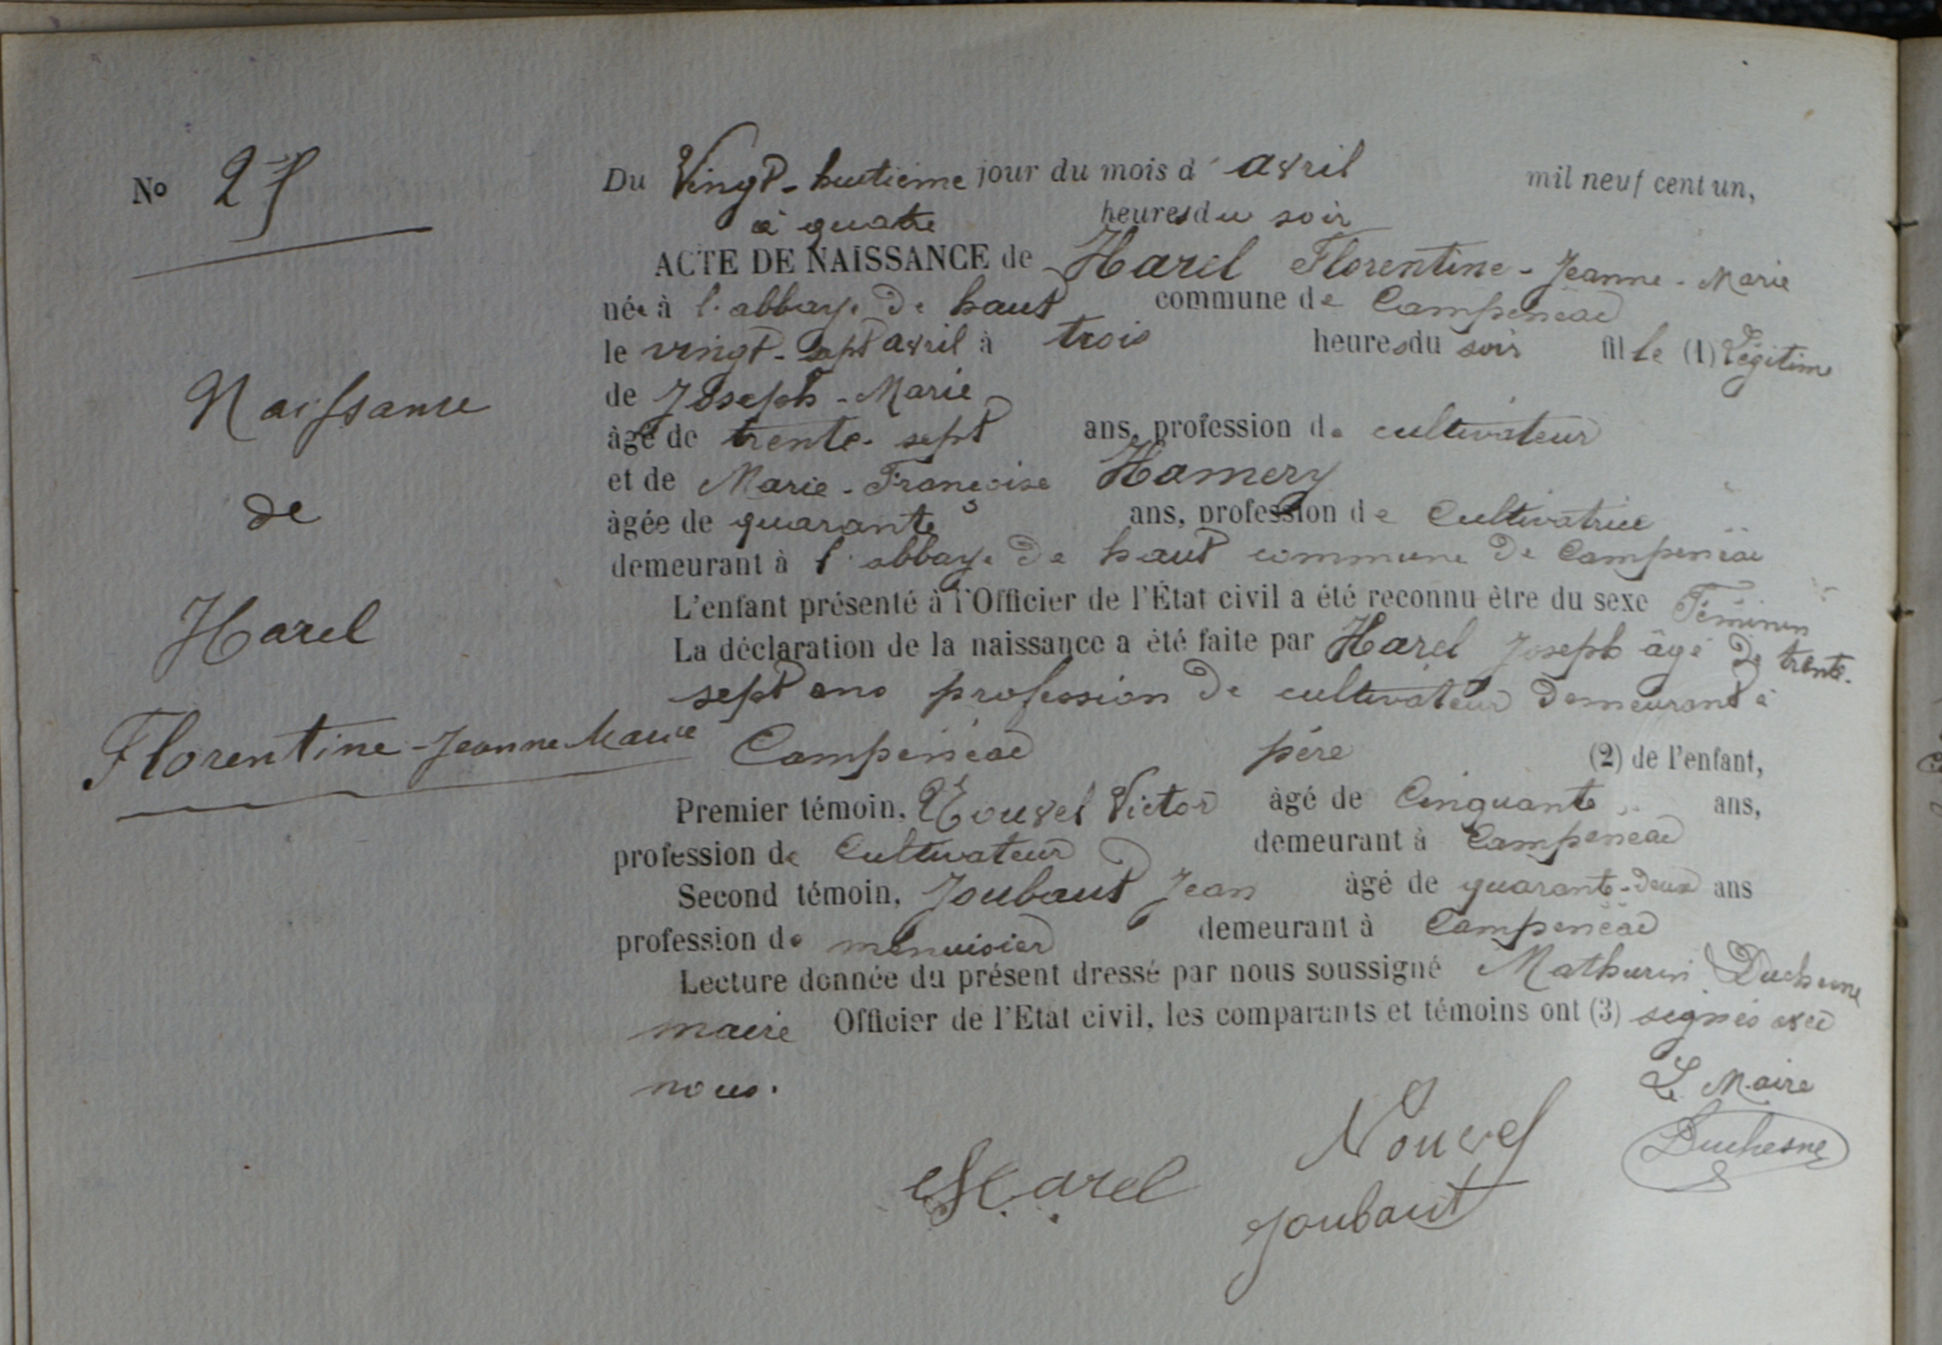 No 27
Du Vingt-huitième jour du mois d'avril mil neuf cent un,
à quatre heures du soir
ACTE DE NAISSANCE de Harel Florentine-Jeanne-Marie
née à l'abbaye de haut commune de Campénéac
le vingt-sept avril à trois heures du soir fille (1) Légitime
de Joseph-Marie
âgé de trente-sept ans, profession de cultivateur
et de Marie-Françoise Hamery
âgée de quarante ans, profession de Cultivatrice
demeurant à l'abbaye de haut commune de Campénéac
L'enfant présenté à l'Officier de l'État civil a été reconnu être du sexe Féminin
La déclaration de la naissance a été faite par Harel Joseph âgé de trente-
sept ans profession de cultivateur demeurant à
Campénéac père (2) de l'enfant,
Premier témoin, Nouvel Victor âgé de Cinquante ans,
profession de Cultivateur demeurant à Campénéac
Second témoin, Joubaut Jean âgé de quarante-deux ans
profession de menuisier demeurant à Campénéac
Lecture donnée du présent dressé par nous soussigné Mathurin Duchesne
maire Officier de l'Etat civil, les comparants et témoins ont (3) signés avec
nous.
Le Maire
Duchesne
Nouvel
Harel
Joubaut
Naissance
de
Harel
Florentine-Jeanne Marie